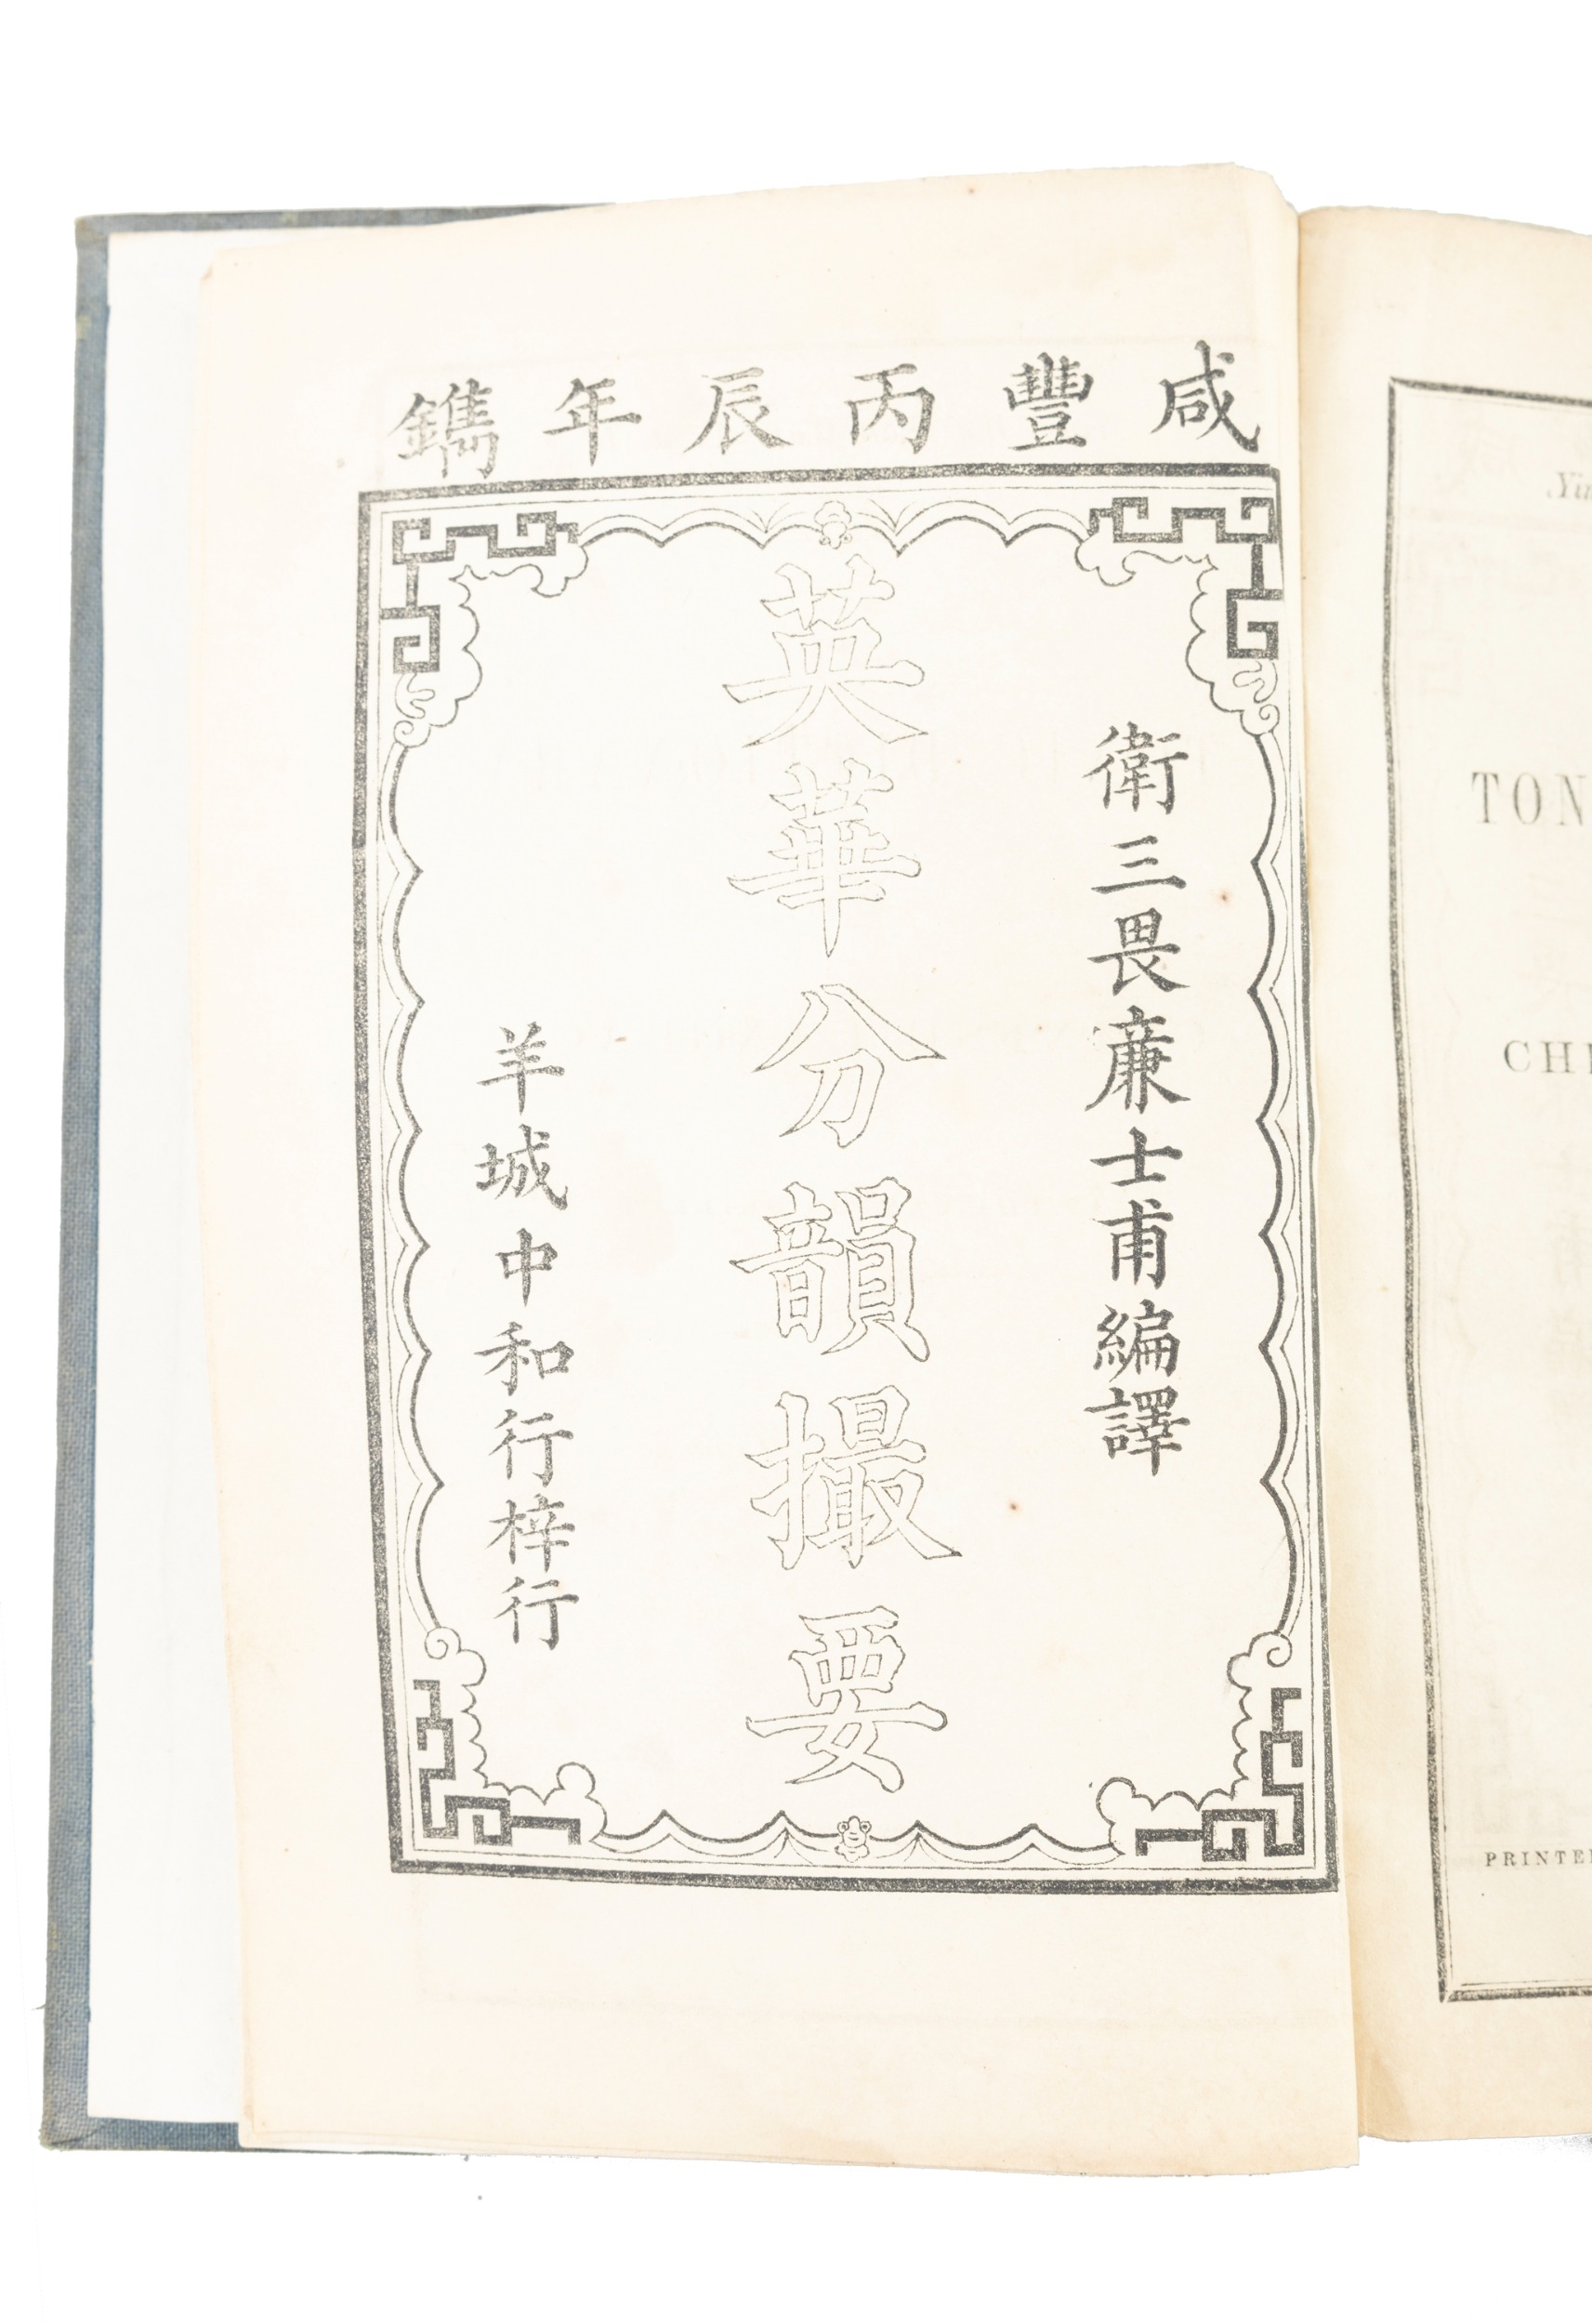 咸豐丙辰年鐫
衛三畏廉士甫編譯
英華分韻撮要
羊城中和行梓行
Yi
TON
CHI
PRINTE